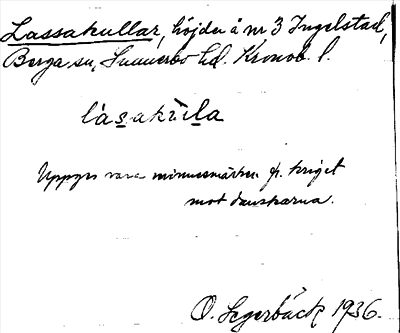 Lassakullar, höjder å nr 3 Ingelstad,
Berga sn, Sunnerbo hd. Kronob. l.
làsakùla
Uppges vara minnesmärken fr. kriget
mot danskarna.
O. Segerbäck 1936.